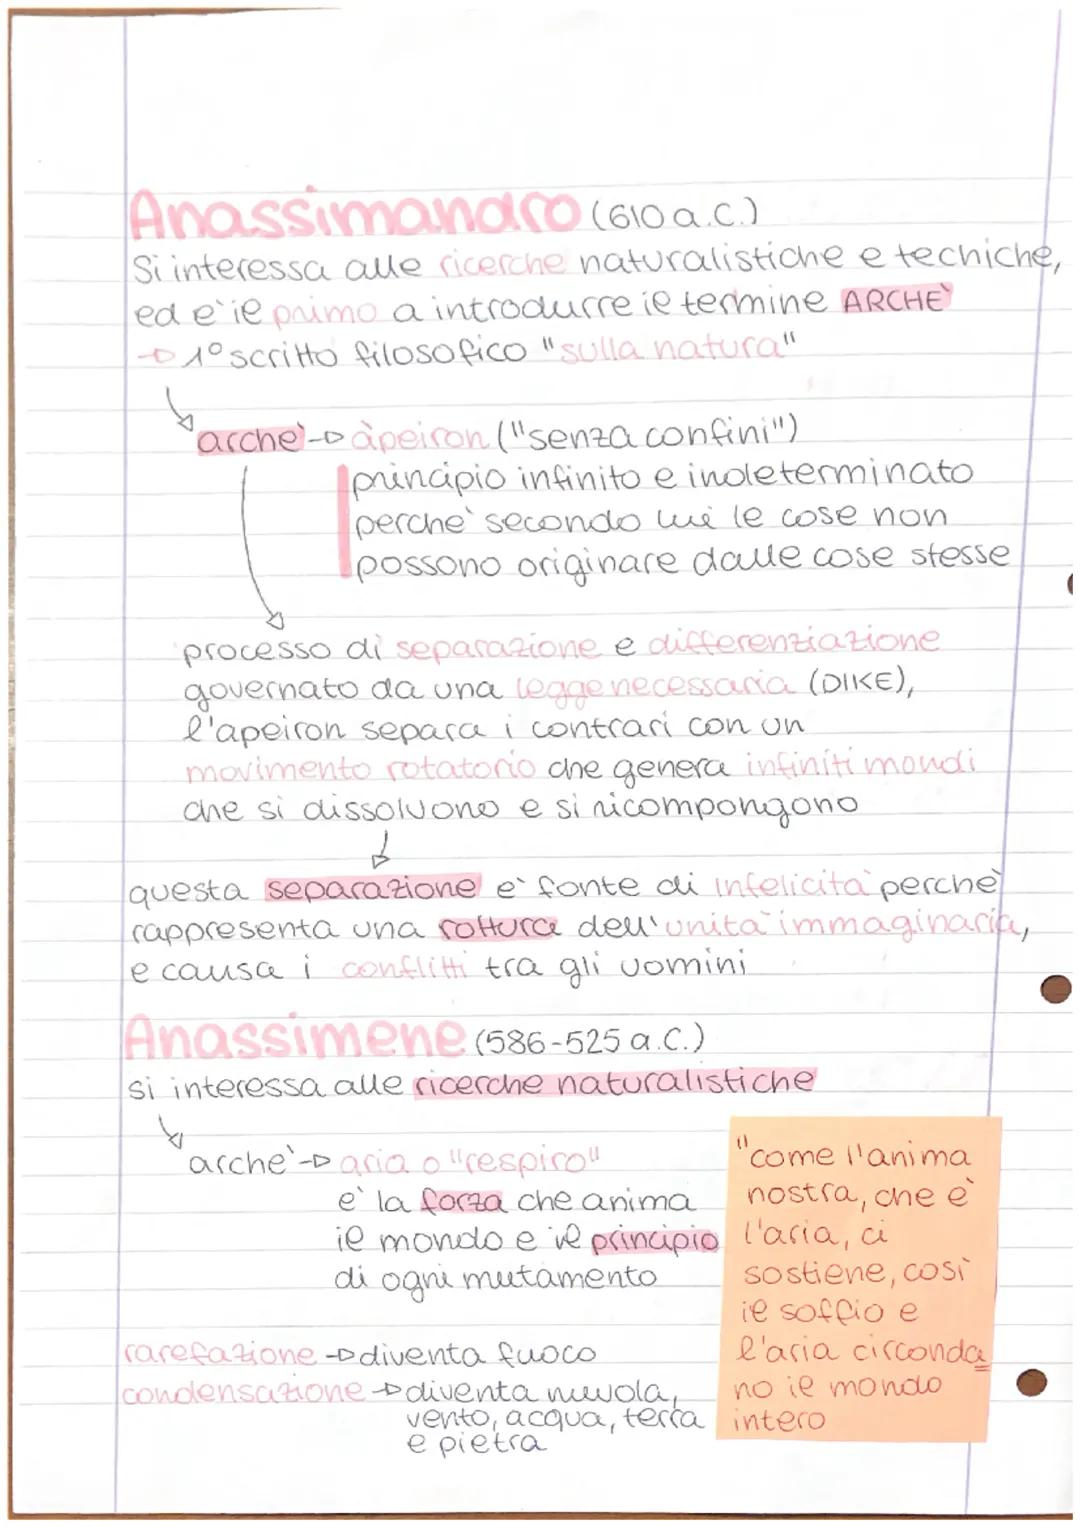 Anassimandro (610 a.C.)
Si interessa alle ricerche naturalistiche e techiche,
ed e' il primo a introdurre il termine ARCHE'
→ 1° scritto filosofico "sulla natura"
arche' → àpeiron ("senza confini")
principio infinito e indeterminato
perche' secondo lui le cose non
possono originare dalle cose stesse
processo di separazione e differenziazione
governato da una legge necessaria (DIKE),
l'apeiron separa i contrari con un
movimento rotatorio che genera infiniti mondi
che si dissolvono e si ricompongono
questa separazione e' fonte di infelicita' perche'
rappresenta una rottura dell'unita' immaginaria,
e causa i conflitti tra gli uomini
Anassimene (586-525 a.C.)
si interessa alle ricerche naturalistiche
arche' → aria o "respiro"
e' la forza che anima
il mondo e il principio
di ogni mutamento
rarefazione → diventa fuoco
condensazione → diventa nuvola,
vento, acqua, terra
e pietra
"come l'anima
nostra, che e'
l'aria, ci
sostiene, così
il soffio e
l'aria circonda
no il mondo
intero